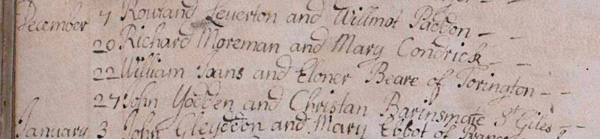 December 7 Rowland Leverton and Willmot Paddon - -
20 Richard Moreman and Mary Condrick -
22 William Jaans and Eloner Beare of Torington - -
27 John Yodden and Christan Barinsmate St Giles -
January 3 John Gleyddon and Mary Ebbot of